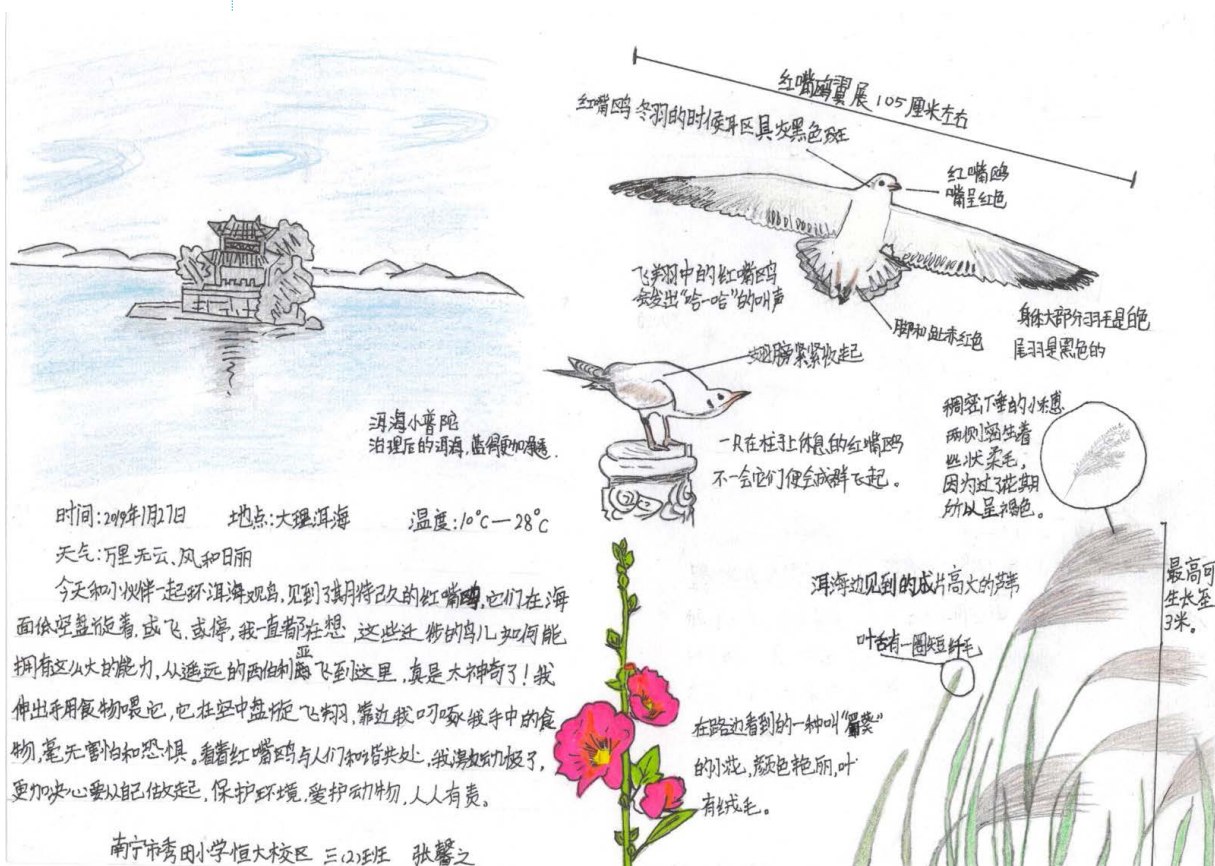 红嘴鸥翼展105厘米左右
红嘴鸥冬羽的时候耳区具炭黑色斑
红嘴鸥
嘴呈红色
飞翔中的红嘴鸥
会发出“哈一哈”的叫声
脚和趾赤红色
身体大部分羽毛是白色
尾羽是黑色的
翅膀紧紧收起
一只在柱子上休息的红嘴鸥
不一会它们便会成群飞起。
洱海小普陀
治理后的洱海,蓝得更加
稠密下垂的小穗
两侧密生着
丝状柔毛,
因为过了花期
所以呈褐色。
洱海边见到的成片高大的芦苇
最高可
生长至
3米。
叶舌有一圈短纤毛
在路边看到的一种叫“蜀葵”
的小花,颜色艳丽,叶
有绒毛。
时间:2019年1月27日 地点:大理洱海 温度:10°C—28°C
天气:万里无云、风和日丽
今天和小伙伴一起环洱海观鸟,见到了期待已久的红嘴鸥,它们在海
面低空盘旋着,或飞,或停,我一直都在想 这些迁徙的鸟儿如何能
拥有这么大的能力,从遥远的西伯利亚飞到这里,真是太神奇了!我
伸出手用食物喂它,它在空中盘旋飞翔,靠近我叼啄我手中的食
物,毫无害怕和恐惧。看着红嘴鸥与人们和谐共处,我激动极了,
更加决心要从自己做起,保护环境,爱护动物,人人有责。
南宁市秀田小学恒大校区 三(2)班 张馨之